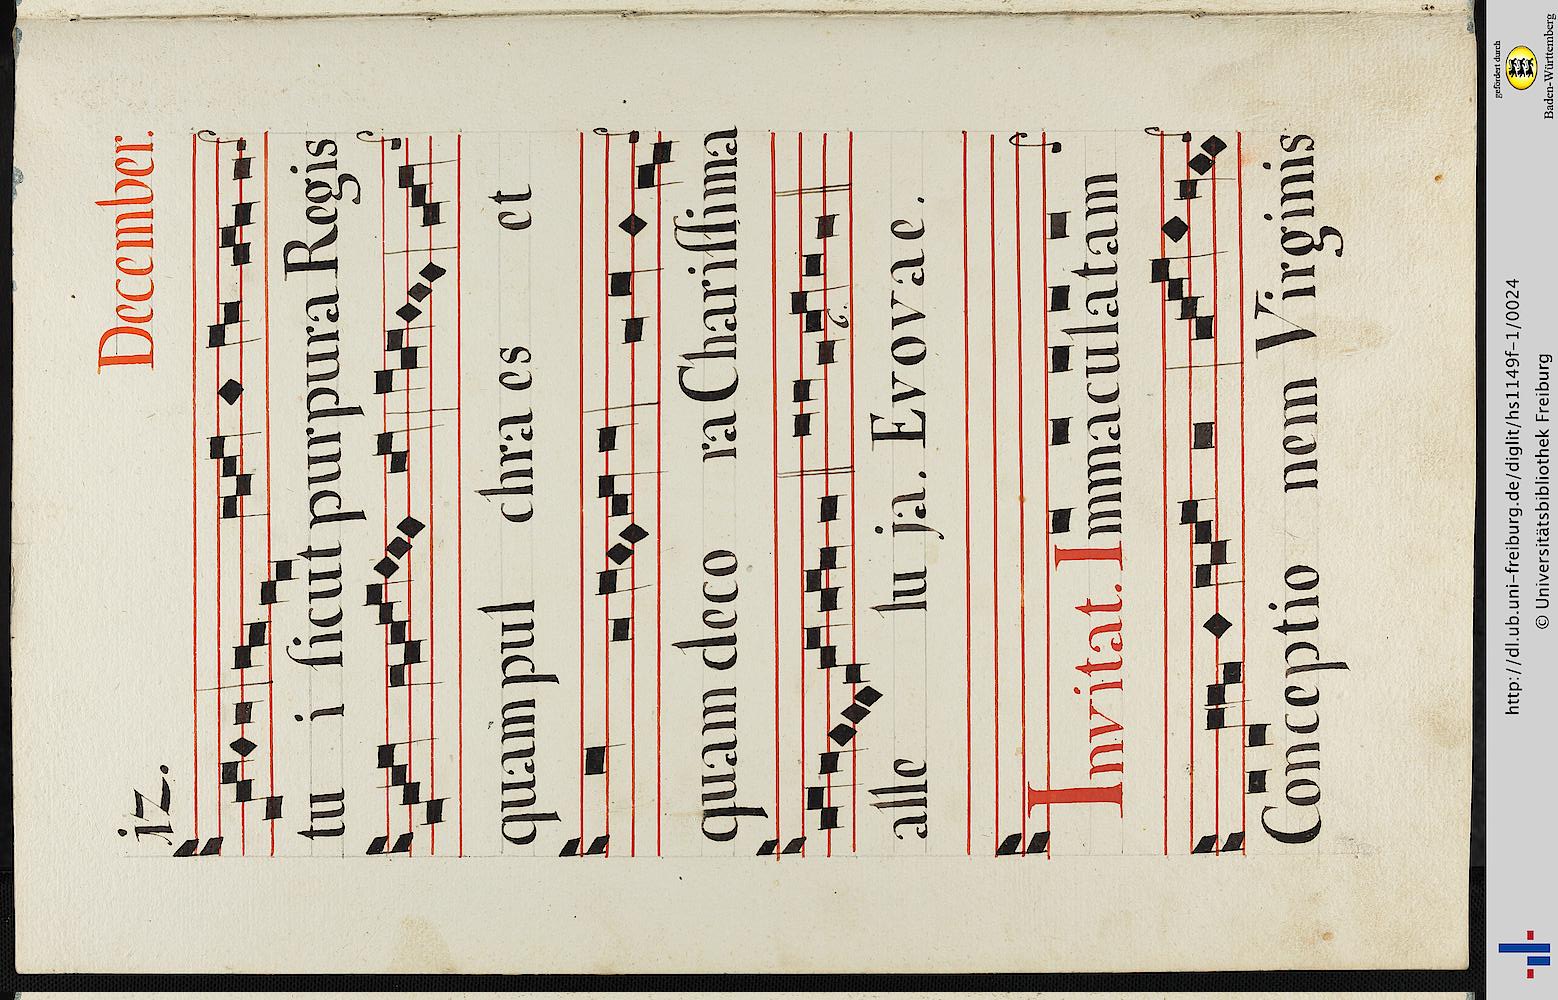 iz. December.
tu i ſicut purpura Regis
quam pul chra es et
quam deco ra Chariſſima
alle lu ja. Evovae.
6.
Invitat. Immaculatam
Conceptio nem Virginis
http://dl.ub.uni-freiburg.de/diglit/hs1149f-1/0024
© Universitätsbibliothek Freiburg
gefördert durch
Baden-Württemberg